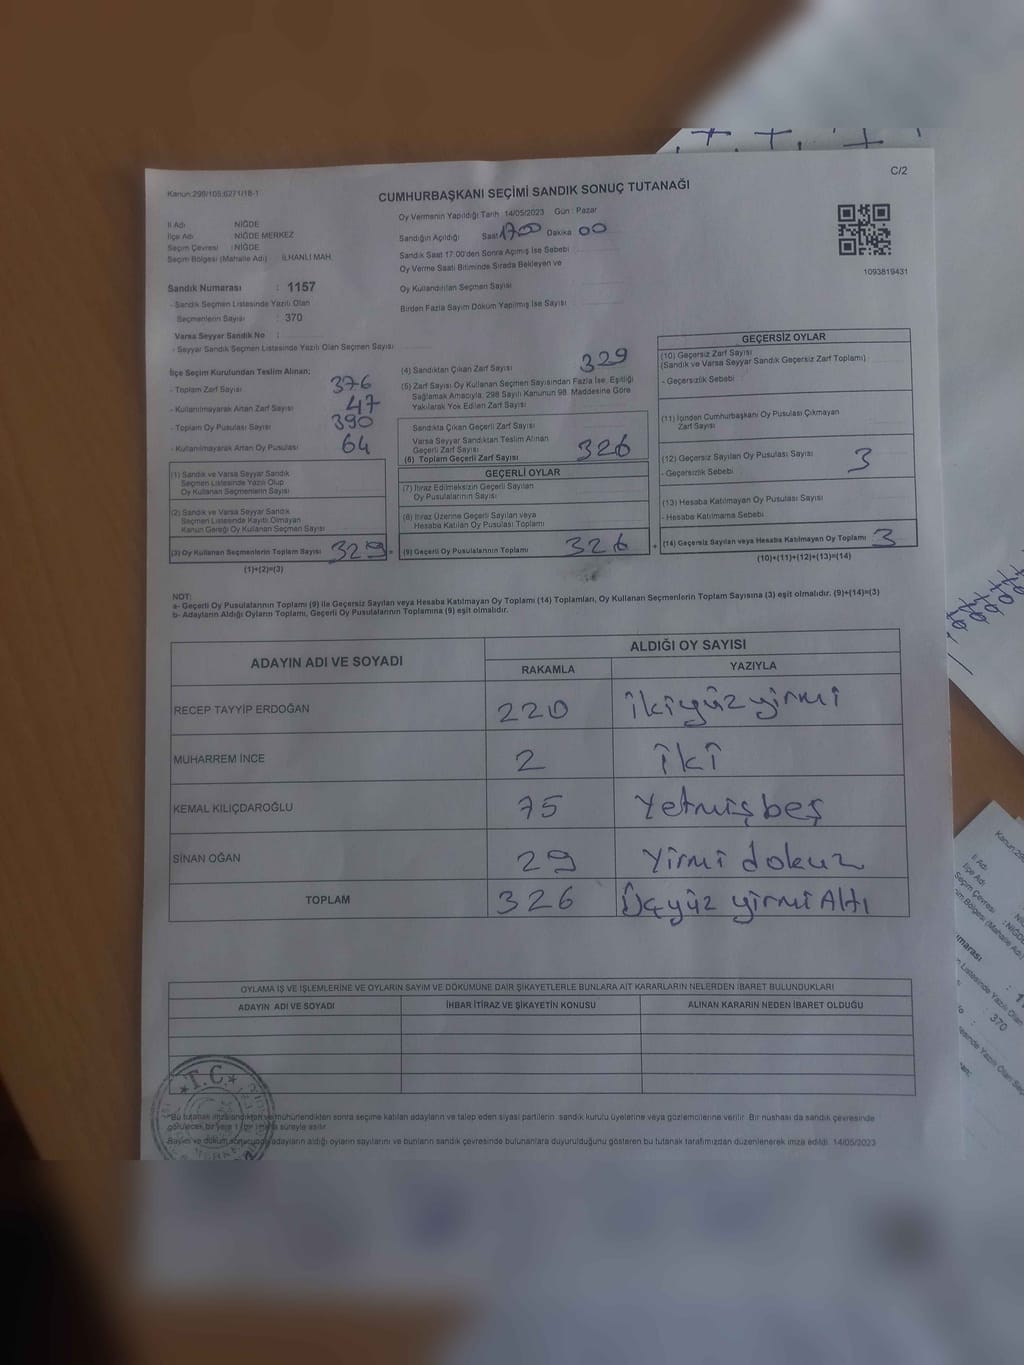 C/2
Kanun:298/105;6271/18-1
CUMHURBAŞKANI SEÇİMİ SANDIK SONUÇ TUTANAĞI
İl Adı NİĞDE
İlçe Adı NİĞDE MERKEZ
Seçim Çevresi : NİĞDE
Seçim Bölgesi (Mahalle Adı) İLHANLI MAH.
Oy Vermenin Yapıldığı Tarih 14/05/2023 Gün : Pazar
Sandığın Açıldığı Saat 17 00 Dakika 00
Sandık Saat 17:00'den Sonra Açımış İse Sebebi
Oy Verme Saati Bitiminde Sırada Bekleyen ve
Oy Kullandırılan Seçmen Sayısı
Birden Fazla Sayım Döküm Yapılmış İse Sayısı
1093819431
Sandık Numarası : 1157
- Sandık Seçmen Listesinde Yazılı Olan
Seçmenlerin Sayısı : 370
Varsa Seyyar Sandık No :
- Seyyar Sandık Seçmen Listesinde Yazılı Olan Seçmen Sayısı
İlçe Seçim Kurulundan Teslim Alınan;
- Toplam Zarf Sayısı 376
- Kullanılmayarak Artan Zarf Sayısı 47
- Toplam Oy Pusulası Sayısı 390
- Kullanılmayarak Artan Oy Pusulası 64
(1) Sandık ve Varsa Seyyar Sandık
Seçmen Listesinde Yazılı Olup
Oy Kullanan Seçmenlerin Sayısı
(2) Sandık ve Varsa Seyyar Sandık
Seçmen Listesinde Kayıtlı Olmayan
Kanun Gereği Oy Kullanan Seçmen Sayısı
(3) Oy Kullanan Seçmenlerin Toplam Sayısı 329 =
(1)+(2)=(3)
(4) Sandıktan Çıkan Zarf Sayısı 329
(5) Zarf Sayısı Oy Kullanan Seçmen Sayısından Fazla İse, Eşitliği
Sağlamak Amacıyla, 298 Sayılı Kanunun 98. Maddesine Göre
Yakılarak Yok Edilen Zarf Sayısı
Sandıkta Çıkan Geçerli Zarf Sayısı
Varsa Seyyar Sandıktan Teslim Alınan
Geçerli Zarf Sayısı
(6) Toplam Geçerli Zarf Sayısı 326
GEÇERLİ OYLAR
(7) İtiraz Edilmeksizin Geçerli Sayılan
Oy Pusulalarının Sayısı
(8) İtiraz Üzerine Geçerli Sayılan veya
Hesaba Katılan Oy Pusulası Toplamı
(9) Geçerli Oy Pusulalarının Toplamı 326 +
GEÇERSİZ OYLAR
(10) Geçersiz Zarf Sayısı
(Sandık ve Varsa Seyyar Sandık Geçersiz Zarf Toplamı)
- Geçersizlik Sebebi
(11) İçinden Cumhurbaşkanı Oy Pusulası Çıkmayan
Zarf Sayısı
(12) Geçersiz Sayılan Oy Pusulası Sayısı 3
- Geçersizlik Sebebi
(13) Hesaba Katılmayan Oy Pusulası Sayısı
- Hesaba Katılmama Sebebi
(14) Geçersiz Sayılan veya Hesaba Katılmayan Oy Toplamı 3
(10)+(11)+(12)+(13)=(14)
NOT:
a- Geçerli Oy Pusulalarının Toplamı (9) ile Geçersiz Sayılan veya Hesaba Katılmayan Oy Toplamı (14) Toplamları, Oy Kullanan Seçmenlerin Toplam Sayısına (3) eşit olmalıdır. (9)+(14)=(3)
b- Adayların Aldığı Oyların Toplamı, Geçerli Oy Pusulalarının Toplamına (9) eşit olmalıdır.
ADAYIN ADI VE SOYADI
ALDIĞI OY SAYISI
RAKAMLA YAZIYLA
RECEP TAYYİP ERDOĞAN 220 İkiyüz yirmi
MUHARREM İNCE 2 İki
KEMAL KILIÇDAROĞLU 75 Yetmiş beş
SİNAN OĞAN 29 Yirmi dokuz
TOPLAM 326 Üçyüz yirmi Altı
OYLAMA İŞ VE İŞLEMLERİNE VE OYLARIN SAYIM VE DÖKÜMÜNE DAİR ŞİKAYETLERLE BUNLARA AİT KARARLARIN NELERDEN İBARET BULUNDUKLARI
ADAYIN ADI VE SOYADI İHBAR İTİRAZ VE ŞİKAYETİN KONUSU ALINAN KARARIN NEDEN İBARET OLDUĞU
T.C.
"Bu tutanak imzalandıktan ve mühürlendikten sonra seçime katılan adayların ve talep eden siyasi partilerin sandık kurulu üyelerine veya gözlemcilerine verilir. Bir nüshası da sandık çevresinde
görülecek bir yere 1 hafta süreyle asılır.
Sayım ve döküm sonucu adayların aldığı oyların sayılarını ve bunların sandık çevresinde bulunanlara duyurulduğunu gösteren bu tutanak tarafımızdan düzenlenerek imza edildi. 14/05/2023
Kanun:298
İl Adı
İlçe Adı
Seçim Çevresi : NİĞDE
370